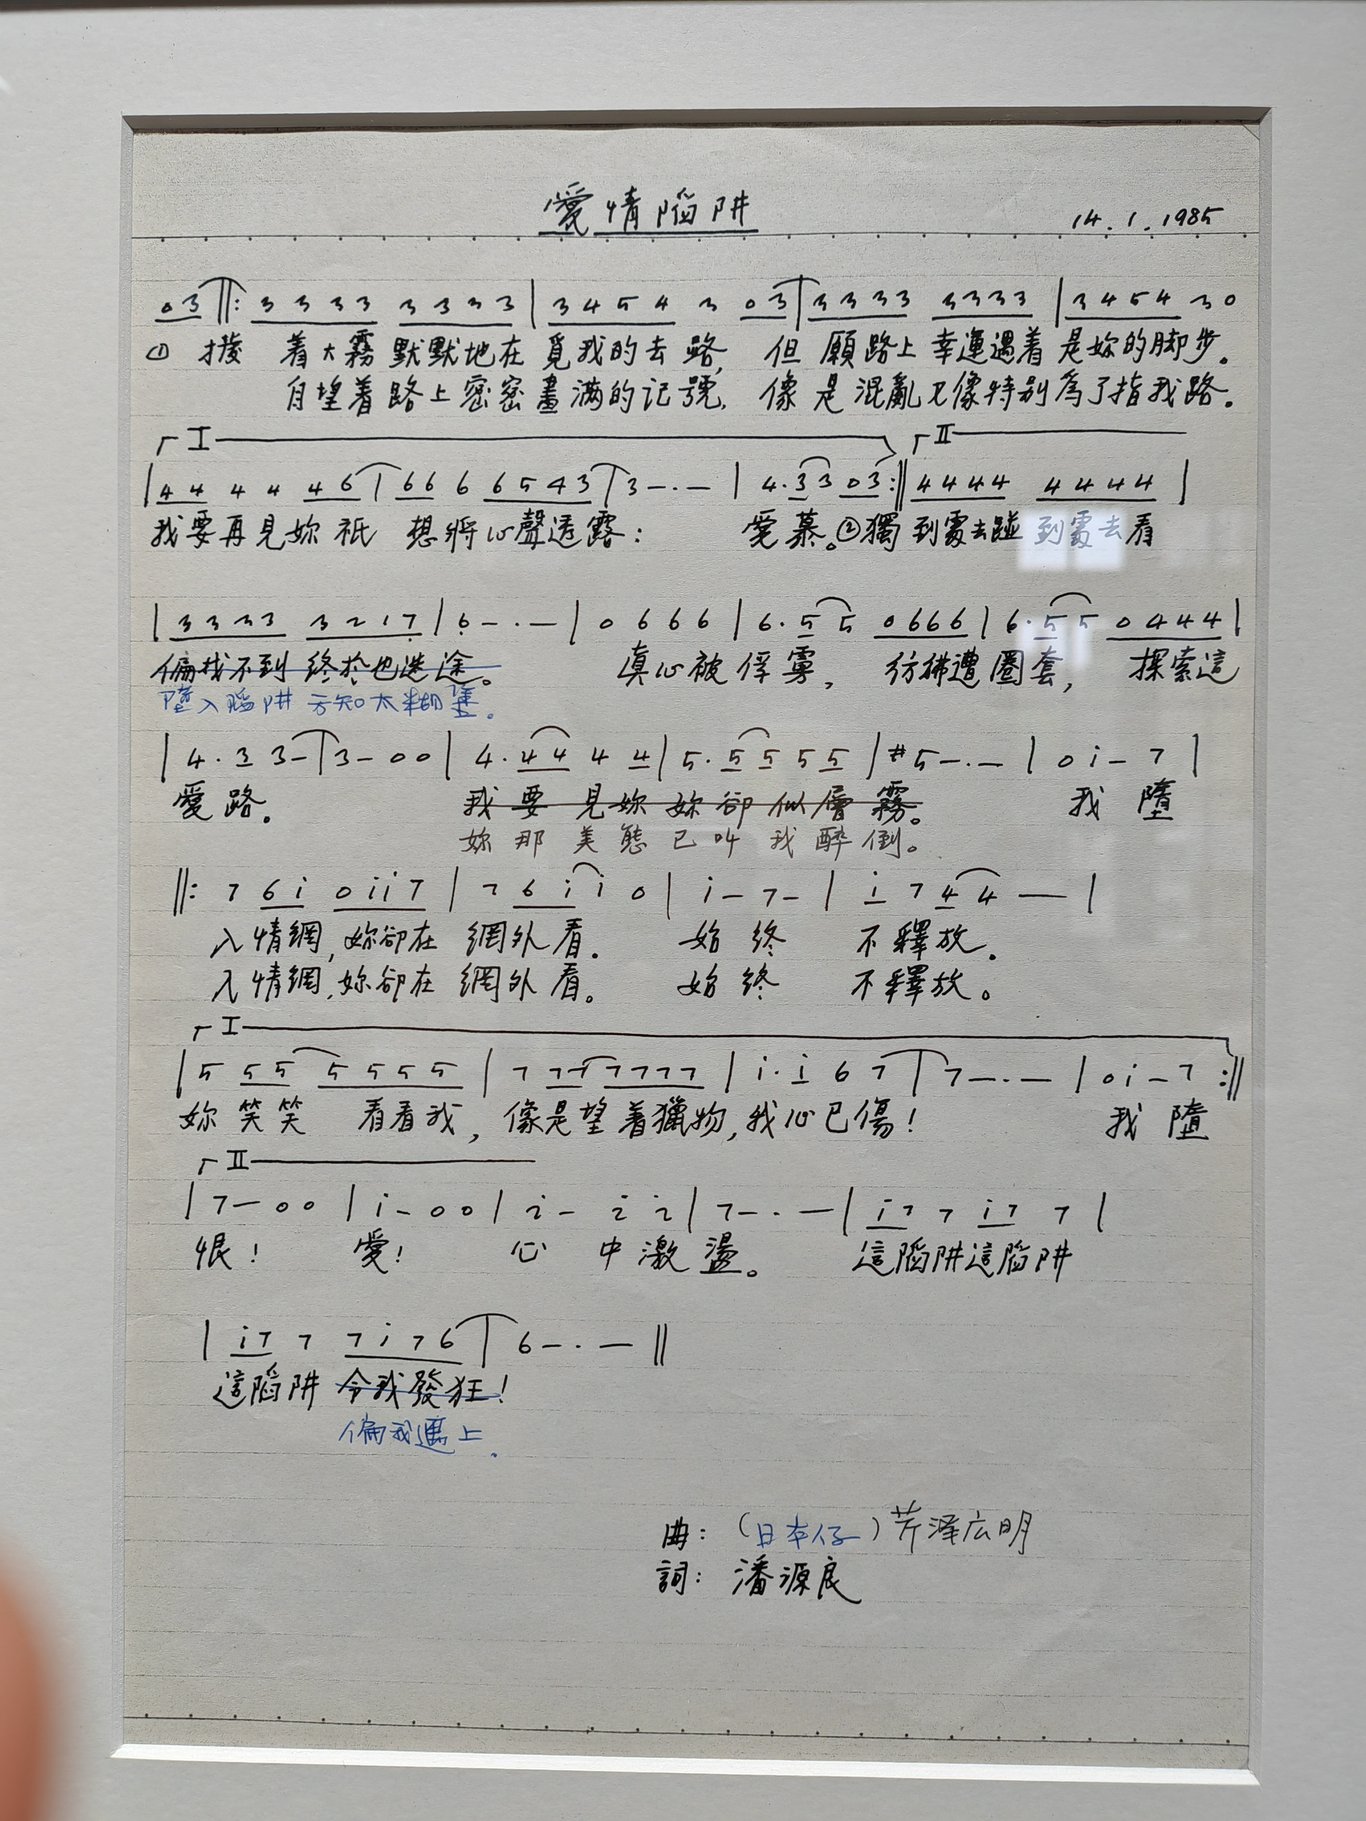 愛情陷阱
14.1.1985
03 ‖: 3333 3333 | 3454 3 03 | 3333 3333 | 3454 30
① 撥 着大霧默默地在覓我的去路, 但願路上幸運遇着是妳的脚步。
自望着路上密密畫滿的记號, 像是混亂又像特別為了指我路。
┌ I ┌ II
| 44 44 46 | 66 6 6543 | 3-·- | 4·33 03 :‖ 4444 4444 |
我要再見妳祇 想將心聲透露: 愛慕。②獨到處去踫到處去看
| 3333 3217 | 6-·- | 0666 | 6·55 0666 | 6·55 0444 |
偏找不到終於也迷途。 真心被俘虜, 彷彿遭圈套, 探索這
墮入陷阱方知太糊塗。
| 4·33- | 3-00 | 4·44 44 | 5·55 55 | #5-·- | 0i-7 |
愛路。 我要見妳妳卻似層霧。 我墮
妳那美態已叫我醉倒。
‖: 7 6i 0ii7 | 7 6i i 0 | i-7- | i 7 4 4 — |
入情網,妳卻在網外看。 始終 不釋放.
入情網,妳卻在網外看。 始終 不釋放。
┌ I
| 5 55 5555 | 7 77 7777 | i·i 6 7 | 7-·- | 0i-7 :‖
妳笑笑 看看我, 像是望着獵物,我心已傷! 我墮
┌ II
| 7-00 | i-00 | 2- 2 2 | 7-·- | i7 7 i7 7 |
恨! 愛! 心中激盪。 這陷阱這陷阱
| i7 7 7i76 | 6-·- ‖
這陷阱令我發狂!
偏我遇上.
曲: (日本仔) 芹澤広明
詞: 潘源良